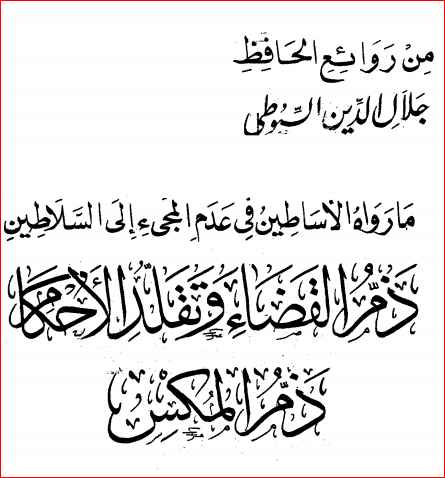 مِنْ رَوَائِعِ الحَافِظِ
جَلَالِ الدِّينِ السُّيُوطِي
مَا رَوَاهُ الأَسَاطِينُ فِي عَدَمِ المَجِيءِ إِلَى السَّلَاطِينِ
ذَمُّ القَضَاءِ وَتَقَلُّدِ الأَحْكَامِ
ذَمُّ المَكْسِ